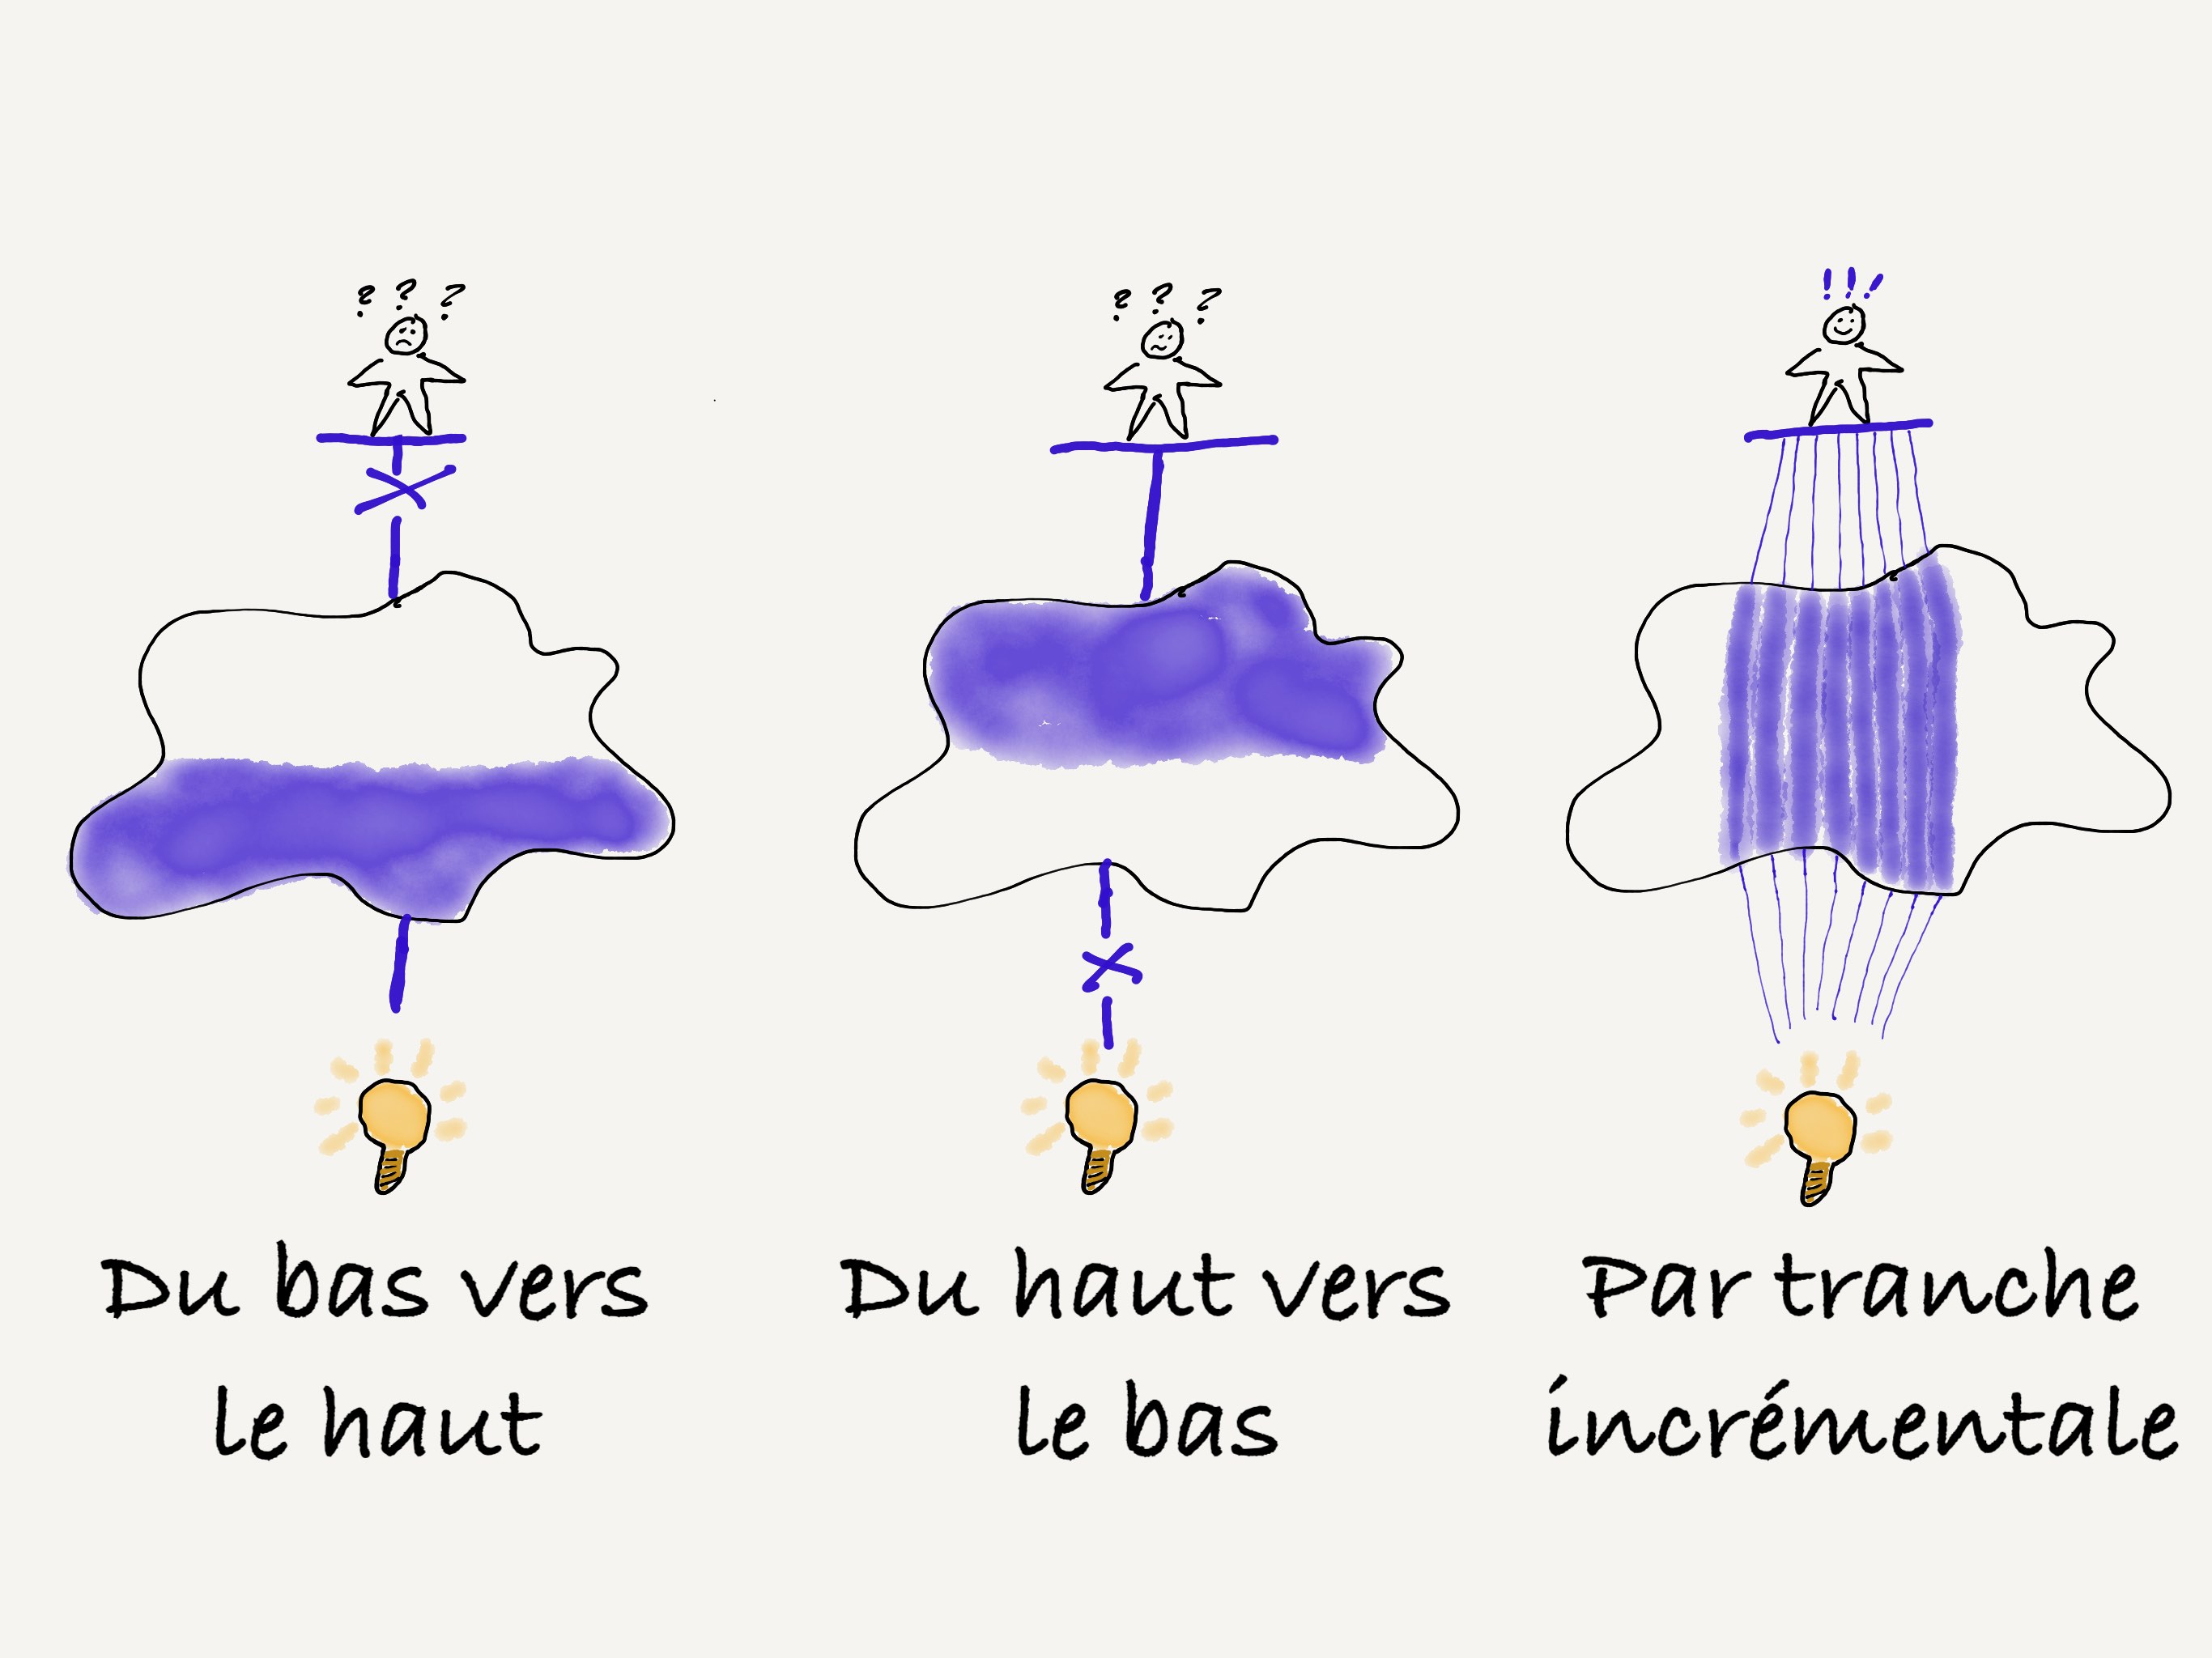 ? ? ?
? ? ?
!!!
Du bas vers
le haut
Du haut vers
le bas
Par tranche
incrémentale